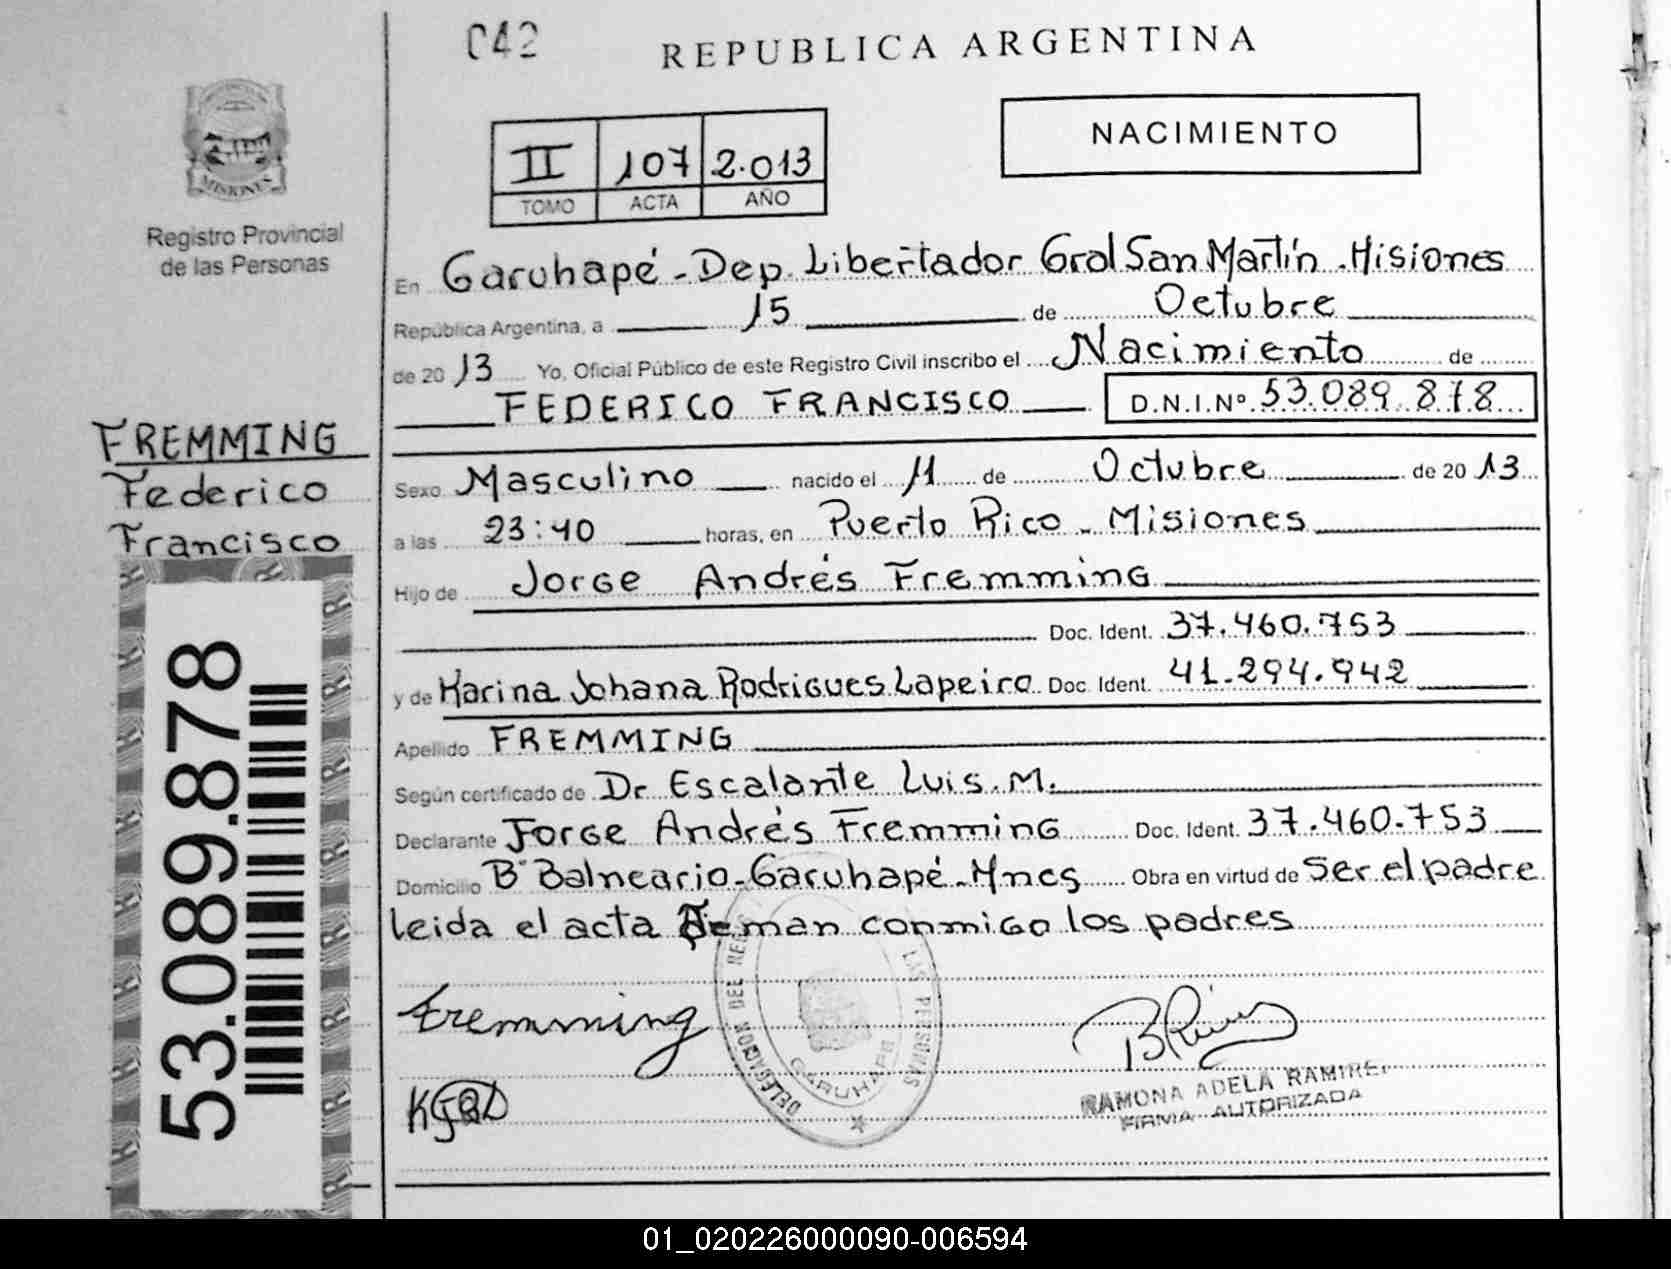 042
REPUBLICA ARGENTINA
NACIMIENTO
II 107 2.013
TOMO ACTA AÑO
MISIONES
Registro Provincial
de las Personas
En Garuhapé - Dep. Libertador Gral San Martín - Misiones
República Argentina, a 15 de Octubre
de 2013 Yo, Oficial Público de este Registro Civil inscribo el Nacimiento de
FEDERICO FRANCISCO D.N.I.Nº 53.089.878
FREMMING
Federico
Francisco
Sexo Masculino nacido el 11 de Octubre de 2013
a las 23:40 horas, en Puerto Rico - Misiones
Hijo de Jorge Andrés Fremming
Doc. Ident. 37.460.753
y de Karina Johana Rodrigues Lapeira Doc. Ident. 41.294.942
Apellido FREMMING
Según certificado de Dr Escalante Luis. M.
Declarante Jorge Andrés Fremming Doc. Ident. 37.460.753
Domicilio Bº Balneario - Garuhapé - Mnes Obra en virtud de Ser el padre
leida el acta firman conmigo los padres
53.089.878
Fremming
DELEGACION DEL REG LAS PERSONAS
GARUHAPE
RAMONA ADELA RAMIREZ
FIRMA AUTORIZADA
01_020226000090-006594